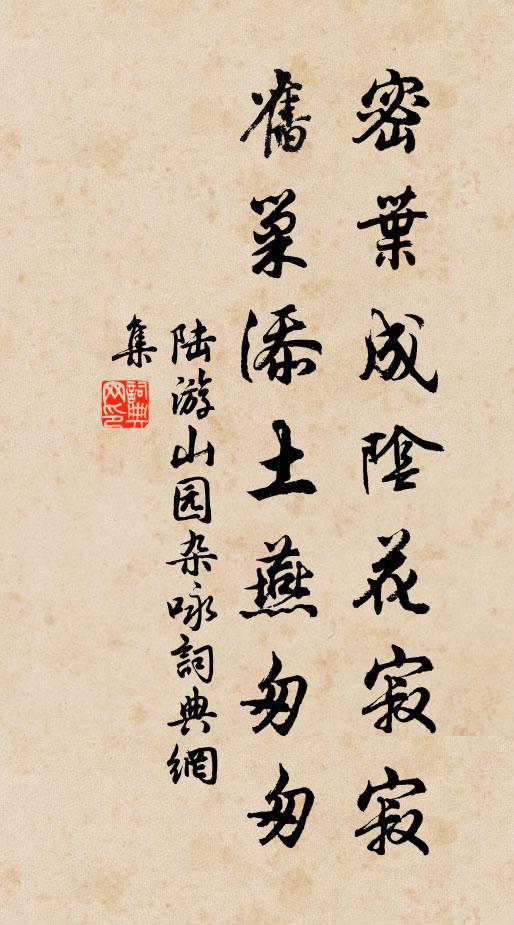 密葉成陰花寂寂
舊巢添土燕匆匆
陆游山园杂咏詞典網
集
詞典網印